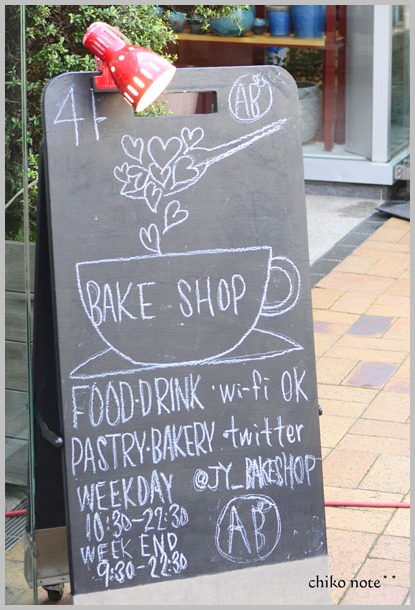 4F
AB
BAKE SHOP
FOOD・DRINK・wi-fi OK
PASTRY・BAKERY・twitter
WEEKDAY @JY_BAKESHOP
10:30-22:30
WEEK END
9:30-22:30
AB
chiko note**